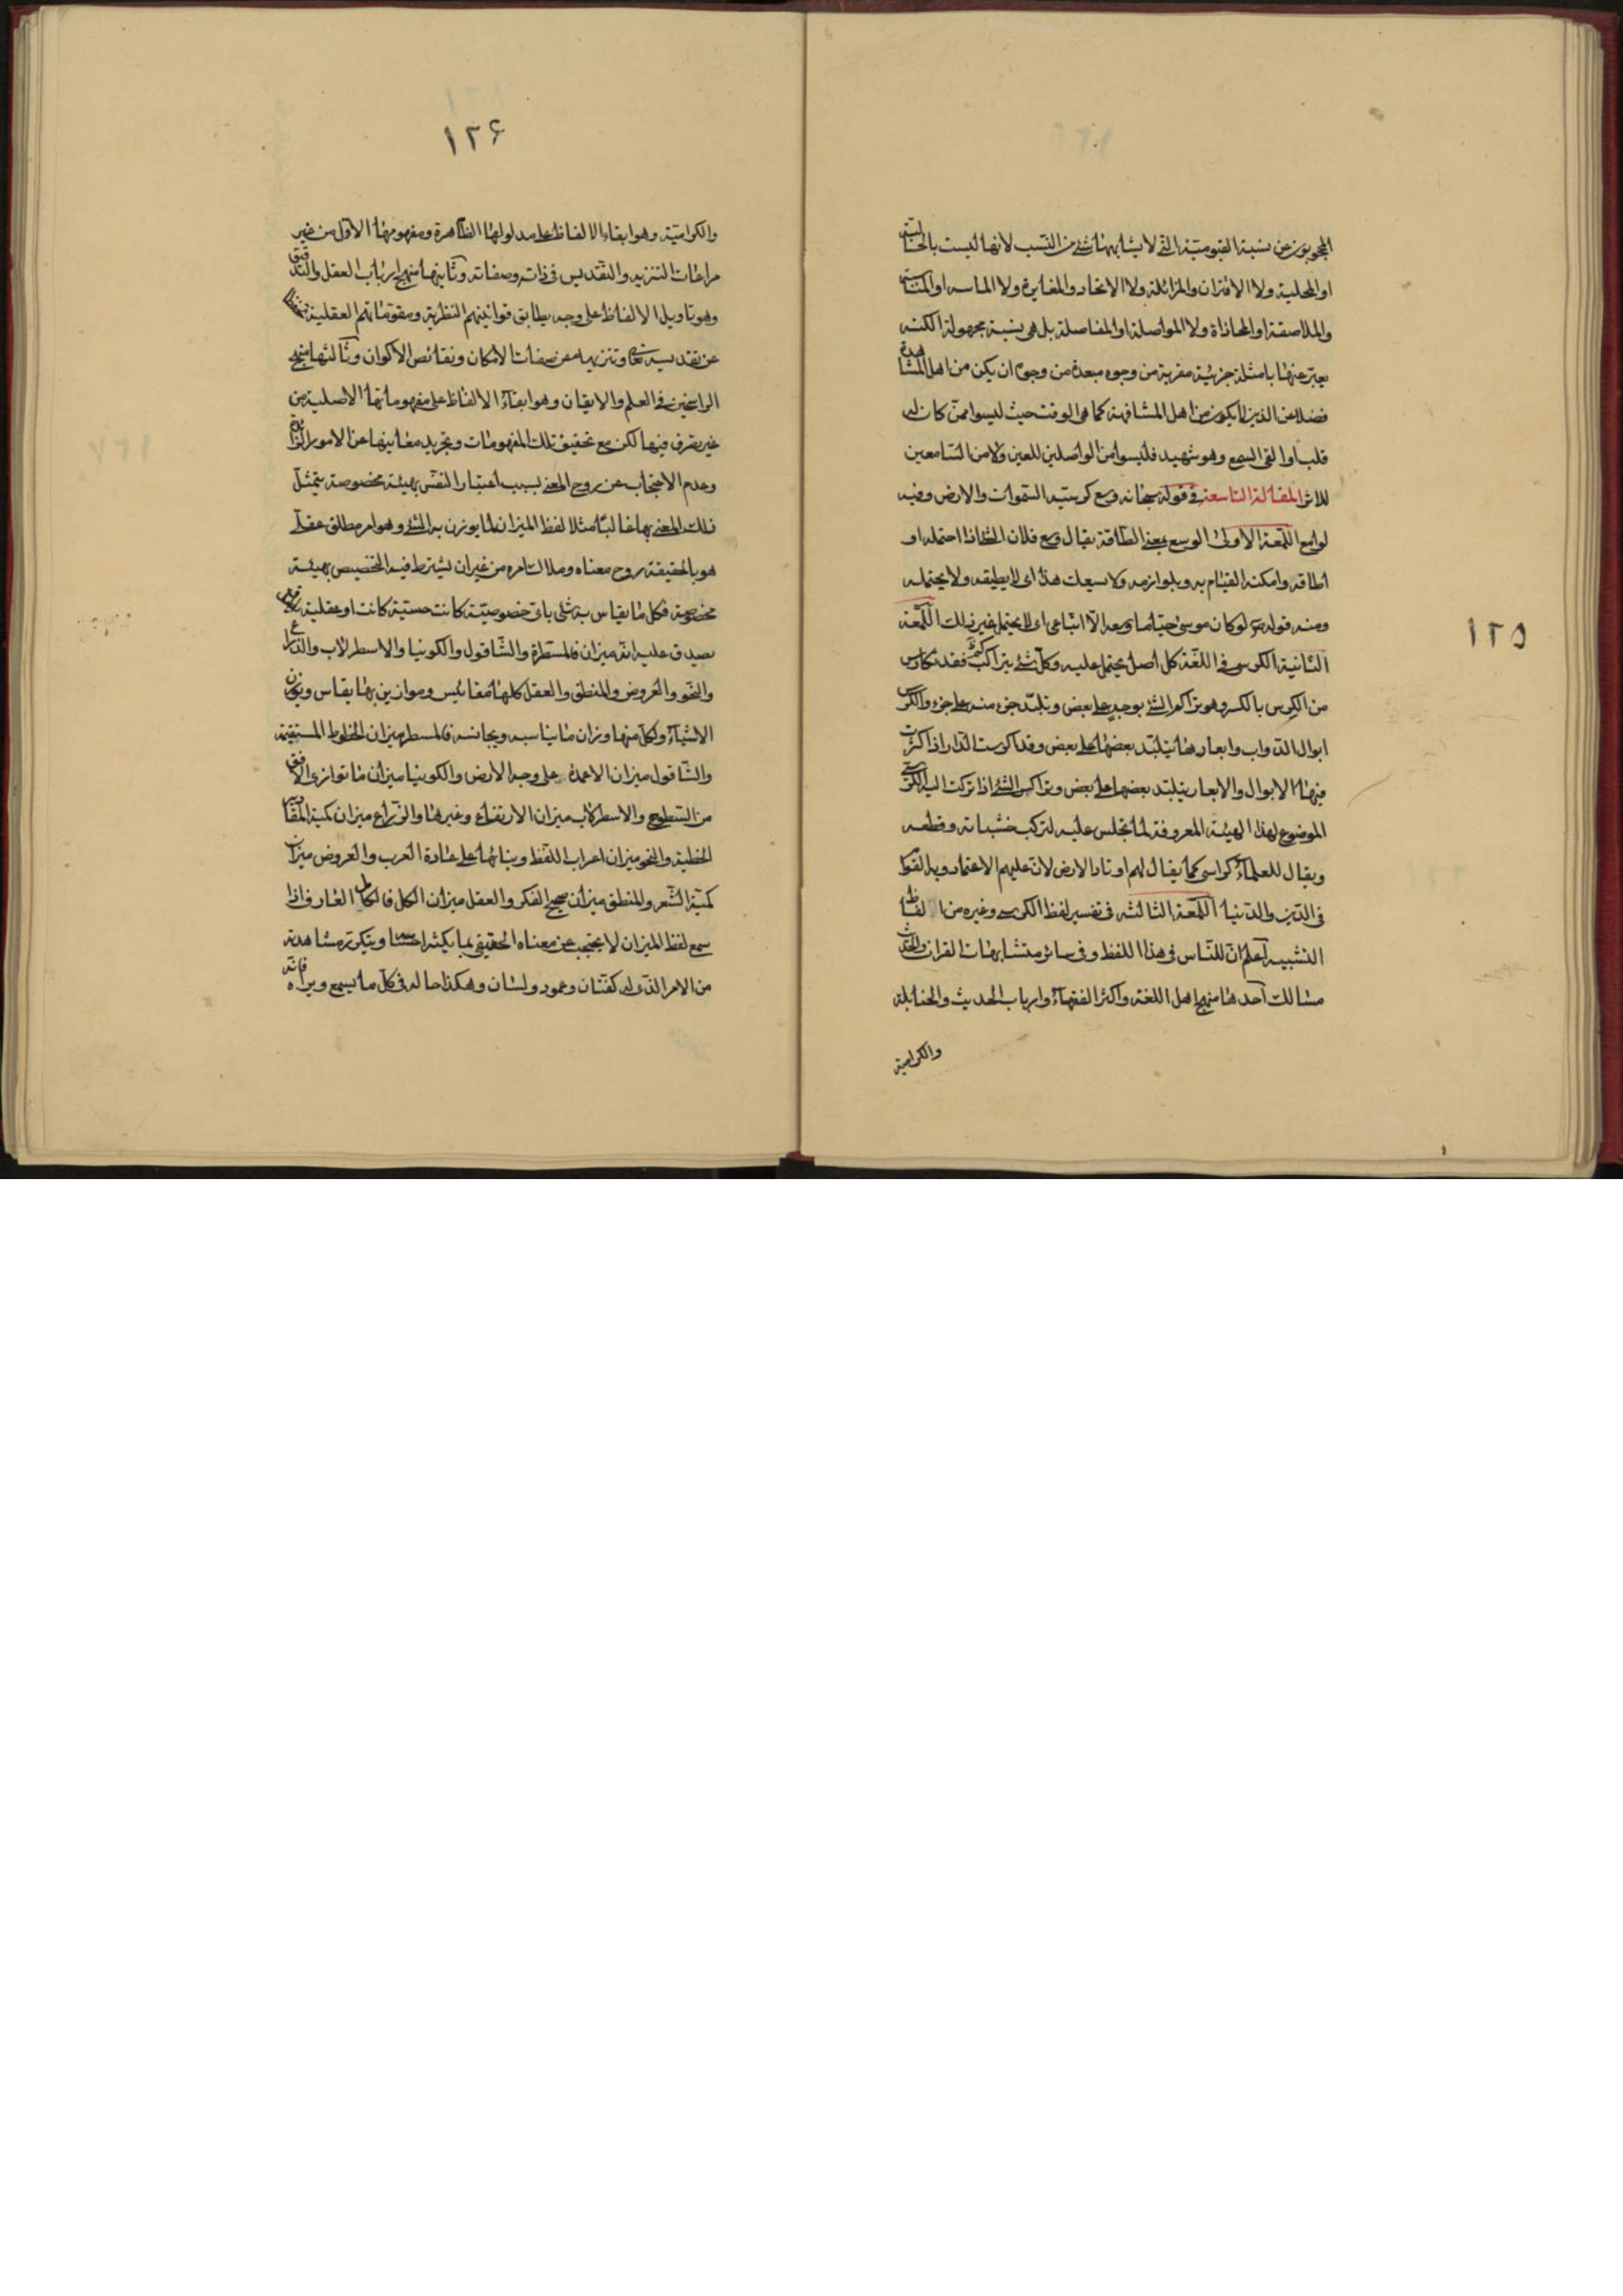 ١٢٥
المحجوبون عن نسبة القيومية التي لا يشابهها شئ من النسب لانها ليست بالحالية
او المحلية ولا الاقتران والمزائلة ولا الاتحاد والمغايرة ولا المماسه او
والملاصقة او المحاذاة ولا المواصلة او المفاصلة بل هى نسبة مجهولة الكنه
يعبر عنها بامثلة جزئية مقربة من وجوه مبعدة من وجوه ان يكن من اهل المشاهدة
فضلا عن الذين لا يكون من اهل المشافهة كما هى الوقت حيث ليسوا ممن كان له
قلب او القى السمع وهو شهيد فليسوا من الواصلين للعين ولا من السامعين
للاثر المقالة التاسعة فى قوله سبحانه وسع كرسيه السموات والارض وفيه
لوامع اللمعة الاولى الوسع بمعنى الطاقة يقال وسع فلان الشئ اذا احتمله او
اطاقه وامكنه القيام به وبلوازمه ولا يسعك هذا اى لا يطيقه ولا يحتمله
ومنه قوله ص لو كان موسى حيا ما وسعه الا اتباعى اى لا يحتمل غير ذلك اللمعة
الثانية الكرسى فى اللغة كل اصل يحتمل عليه وكل شئ يتراكب فقد تكارس
من الكرس بالكسر وهو تراكم الشئ بوجه على بعض وتلبد جزء منه على جزء والكرس
ابوال الدواب وابعارها يتلبد بعضها على بعض وقد اكرست الدار اذا كثرت
فيها الابوال والابعار يتلبد بعضها على بعض وتراكس الشئ اذا تركت اليه الكرسى
الموضوع لهذا الهيئة المعروفة لما يجلس عليه لتركب خشباته وقطعه
ويقال للعلماء كراسى كما يقال لهم اوتاد الارض لان عليهم الاعتماد وبه القوام
فى الدين والدنيا اللمعة الثالثة فى تفسير لفظ الكرسى وغيره من الفاظ
التشبيه اعلم ان للناس فى هذا اللفظ وفى سائر متشابهات القران والحديث
مسالك احدها منهج اهل اللغة واكثر الفقهاء وارباب الحديث والحنابلة
والكرامية
١٢۶
والكرامية وهو ابقاء الالفاظ على مدلولها الظاهرة ومفهومها الاول من غير
مراعات التنزيه والتقديس فى ذاته وصفاته وثانيها منهج ارباب العقل والتدقيق
وهو تاويل الالفاظ على وجه يطابق قوانينهم النظرية ومقوماتهم العقلية
عن تقديسه تعالى وتنزيهه عن صفات الامكان ونقائص الاكوان وثالثها منهج
الراسخين فى العلم والايقان وهو ابقاء الالفاظ على مفهوماتها الاصلية من
غير تصرف فيها لكن مع تحقيق تلك المفهومات وتجريد معانيها عن الامور الزائدة
وعدم الاحتجاب عن روح المعنى بسبب اعتبار النفس بهيئة مخصوصة يتمثل
ذلك المعنى بها غالبا مثلا لفظ الميزان لما يوزن به الشئ وهو امر مطلق عقلى
هو بالحقيقة روح معناه وملاك امره من غير ان يشترط فيه التخصيص بهيئة
مخصوصة فكل ما يقاس به شئ باى خصوصية كانت حسية كانت او عقلية
يصدق عليه انه ميزان فالمسطرة والشاقول والكونيا والاسطرلاب والذراع
والنحو والعروض والمنطق والعقل كلها مقائيس وموازين بها يقاس ويوزن
الاشياء ولكل منها وزان ما يناسبه ويجانسه فالمسطر ميزان الخطوط المستقيمة
والشاقول ميزان الاعمدة على وجه الارض والكونيا ميزان ما توازى الافق
من السطوح والاسطرلاب ميزان الارتفاع وغيرها والذراع ميزان كمية المقادير
الخطية والنحو ميزان اعراب اللفظ وبنائها على عادة العرب والعروض ميزان
كمية الشعر والمنطق ميزان صحيح الفكر والعقل ميزان الكل فالكامل العارف اذا
سمع لفظ الميزان لا يحتجب عن معناه الحقيقى بما يكثر احساسا ويتكرر مشاهدته
من الامر الذى له كفتان وعمود ولسان وهكذا حاله فى كل ما يسمع ويراه فانه